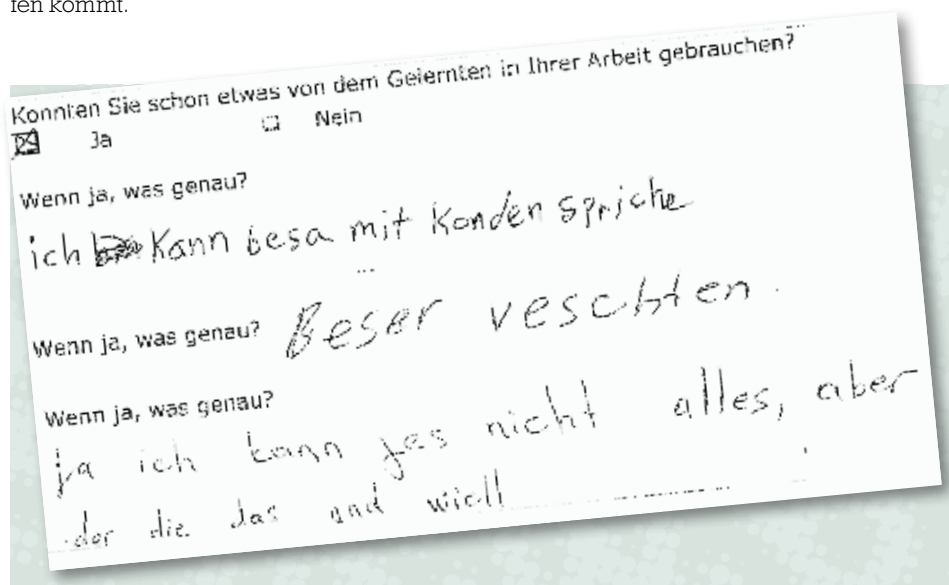 fen kommt.
Konnten Sie schon etwas von dem Gelernten in Ihrer Arbeit gebrauchen?
Ja Nein
Wenn ja, was genau?
ich Kann besa mit Konden spriche
...
Wenn ja, was genau? Beser veschten.
Wenn ja, was genau?
ja ich kann jes nicht alles, aber
der die das und wiell